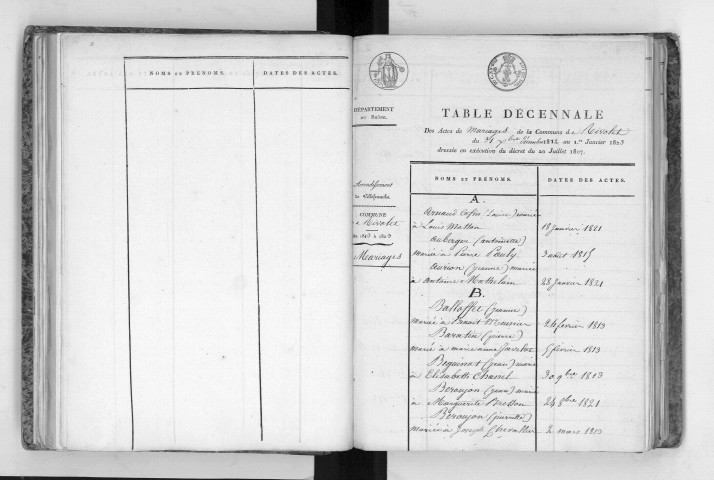 NOMS ET PRÉNOMS.
DATES DES ACTES.
DÉPARTEMENT
du Rhône.
Arrondissement
de Villefranche
COMMUNE
de Rivolet
de 1813 à 1823
Mariages
TABLE DÉCENNALE
Des Actes de Mariages de la Commune de Rivolet
du 31 Xbre 1812 au 1.er Janvier 1823
dressée en exécution du décret du 20 Juillet 1807.
NOMS ET PRÉNOMS.
DATES DES ACTES.
A.
Arnaud mariée
à Louis Matton 18 janvier 1821
Auberger (antoinette)
mariée à Pierre Pauly 3 aout 1815
Aurion (jeanne) mariée
à antoine Mathelin 28 janvier 1821
B.
Balloffet (jeanne)
mariée à Benoit 24 février 1813
Baratin (pierre)
marié à marie anne 5 février 1813
Bequinat (jean) marié
à Elisabeth Chanel 30 9bre 1813
Beroujon (jean) marié
à Marguerite Bresson 24 8bre 1821
Beroujon (pierrette)
mariée à Joseph Chevallier 2 mars 1813